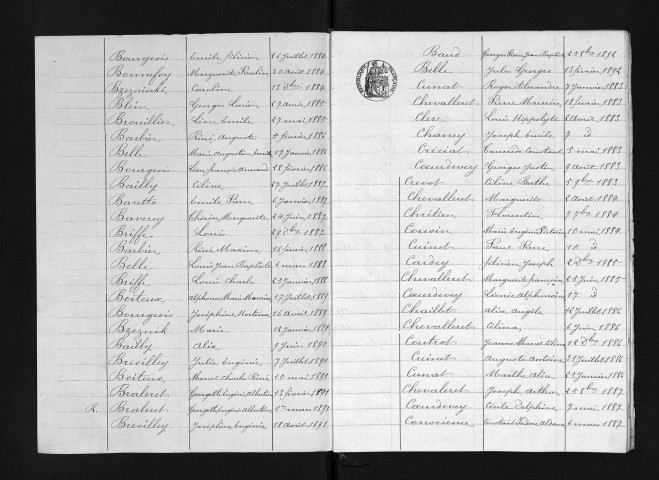 Bourgeois Emile félicien 26 Juillet 1884
Bonnefoy Marguerite Pauline 20 Août 1884
Caroline 13 Xbre 1884
Blein Georges Lucien
Brouillier Léon Emile 27 mai 1885
Barbier René Auguste 5 février 1886
Belle Marie Augustine Emilie 17 Janvier 1886
Bourgeois Léon françois Armand 28 février 1886
Bailly Céline 27 Juillet
Baretto Emile Pierre 6 Janvier 1887
Baverey Thérèse Marguerite 24 Juin 1887
Briffe Louis 29 Xbre 1887
Barbier René Maxime 16 février 1888
Belle Louis Jean Baptiste 6 mars 1888
Briffe Louis Charles 22 Janvier 1888
Boiteux Alphonse Marie Maurice 17 Juillet 1889
Bourgeois Joséphine Hortense 16 Août 1889
Bzeznik Marie 12 Janvier 1889
Bailly Alix 9 Juin 1890
Brévilley Julie Eugénie 7 Juillet 1890
Boiteux Marcel Charles René 10 mai 1891
Braleret Georgette Eugénie Albertine 13 février 1891
R. Braleret Georgette Eugénie Albertine 1er mars 1891
Brévilley Joséphine Eugénie 18 Août 1892
Baud Georges Pierre Jean Baptiste 2 8bre 1892
Belle Jules Georges 13 février 1892
Cunat Roger Alexandre 7 Janvier 1883
Chevalleret Pierre Maurice 18 février 1883
Clerc Louis Hippolyte 2 Avril 1883
Chaney Joseph Emile 7 d
Constant 5 mai 1883
Cœurdevey Georges Justin 9 Août 1883
Crevot Céline Berthe 5 9bre 1883
Chevalleret Marguerite 2 Août 1884
Chrétien Florentine 7 9bre 1884
Cousin Marie Eugénie Victorine 10 mai 1884
Cuinet Paul Pierre 10 d
Cardey félicien Joseph 2 Xbre 1885
Chevalleret Marguerite françoise 25 Juin 1885
Cœurdevey Léonie Alphonsine 17 d
Chaillet Alice Angèle 12 Juillet 1886
Chevalleret Célina 6 Juin 1886
Coutrot Jeanne Marcel 12 Xbre 1886
Cuinet Auguste Antoine 21 Juillet 1886
Cunat Marthe Alice 23 Janvier 1886
Chevaleret Joseph Arthur 2 8bre 1887
Cœurdevey Cécile Delphine 7 mai 1887
Constant 6 mars 1887